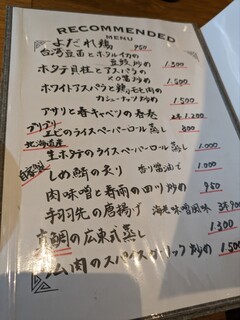 RECOMMENDED
MENU
よだれ鶏 950
台湾豆苗とホタルイカの
豆豉炒め 1.300
ホタテ貝柱とアスパラの
XO醤炒め 1.500
ホワイトアスパラと鶏モモ肉の
カシューナッツ炒め 1.500
アサリと春キャベツの春巻 2本 1.200
プリプリ
エビのライスペーパーロール蒸し 300
北海道産
生ホタテのライスペーパーロール蒸し 1.000
自家製
しめ鯖の炙り 香り醤油で 1.000
肉味噌と春雨の四川炒め 950
手羽先の唐揚げ 海老味噌風味 3本 900
真鯛の広東式蒸し 1.300
肉のスパイスガーリック炒め 1.500